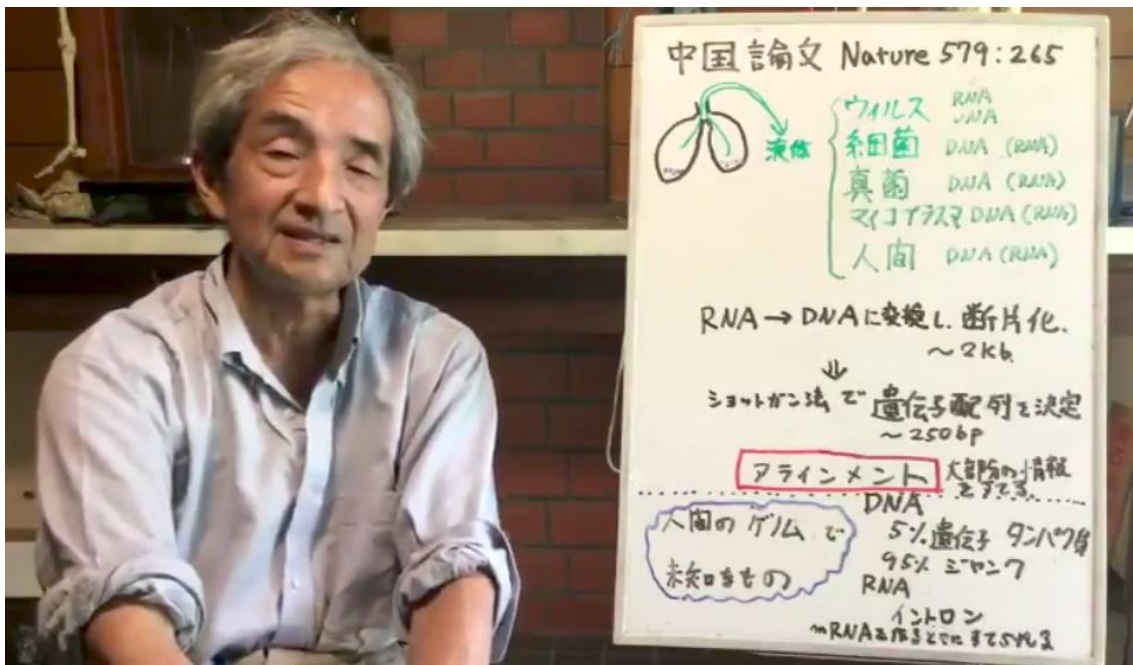 中国論文 Nature 579:265
ウィルス RNA DNA
液体
細菌 DNA (RNA)
真菌 DNA (RNA)
マイコプラズマ DNA (RNA)
人間 DNA (RNA)
RNA→DNAに変換し、断片化、
～2kb
⇓
ショットガン法で遺伝子配列を決定
～250bp
アラインメント 大部分の情報
をすてる
DNA
人間のゲノムで
未知なもの
5% 遺伝子 タンパク質
95% ジャンク
RNA
イントロン
mRNAを作るときにすてられる